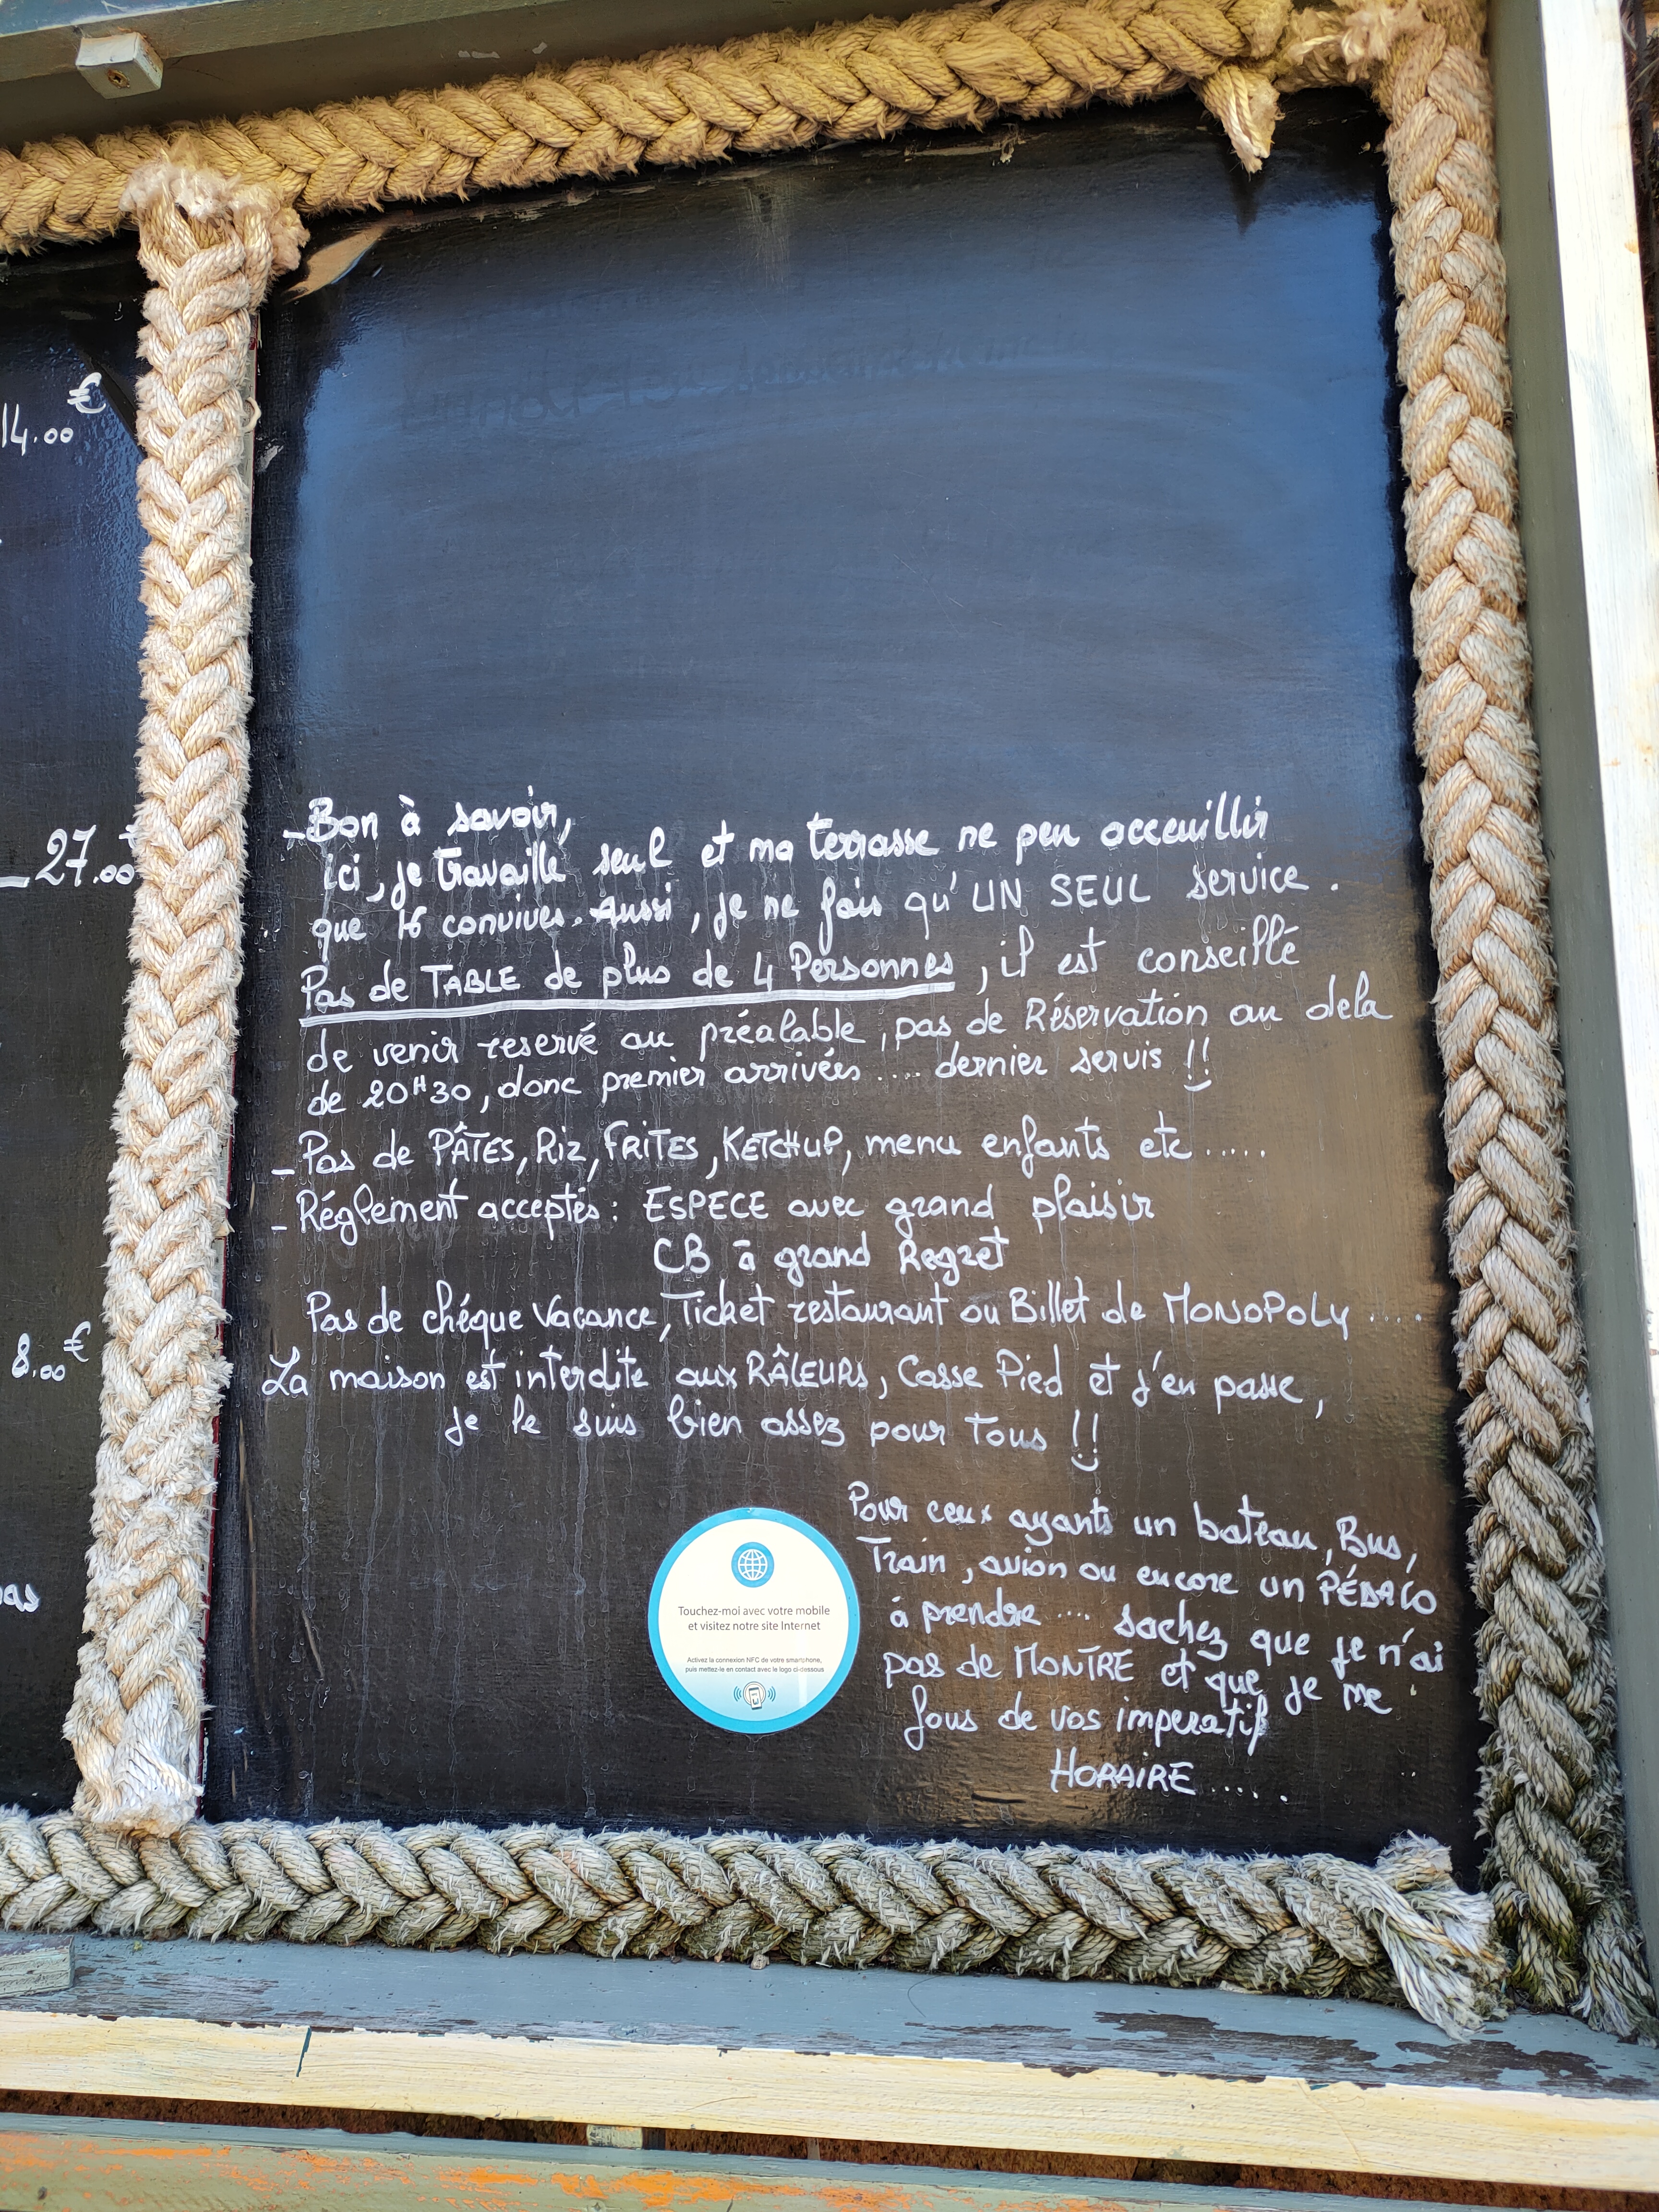 14.00 €
27.00 €
8.00 €
as
- Bon à savoir,
ici, je travaille seul et ma terrasse ne peu acceuillir
que 16 convives. Aussi, je ne fais qu'UN SEUL service.
Pas de TABLE de plus de 4 Personnes, il est conseillé
de venir reservé au préalable, pas de Réservation au dela
de 20H30, donc premier arrivées .... dernier servis !!
- Pas de PÂTES, Riz, FRITES, KETCHUP, menu enfants etc .....
- Réglement acceptés : ESPECE avec grand plaisir
CB à grand Regret
Pas de chéque Vacance, Ticket restaurant ou Billet de MONOPOLY ....
La maison est interdite aux RÂLEURS, Casse Pied et j'en passe,
je le suis bien assez pour Tous !!
Pour ceux ayants un bateau, Bus,
Train, avion ou encore un PÉDALO
à prendre .... sachez que je n'ai
pas de MONTRE et que je me
fous de vos imperatif
HORAIRE .....
Touchez-moi avec votre mobile
et visitez notre site Internet
Activez la connexion NFC de votre smartphone,
puis mettez-le en contact avec le logo ci-dessous